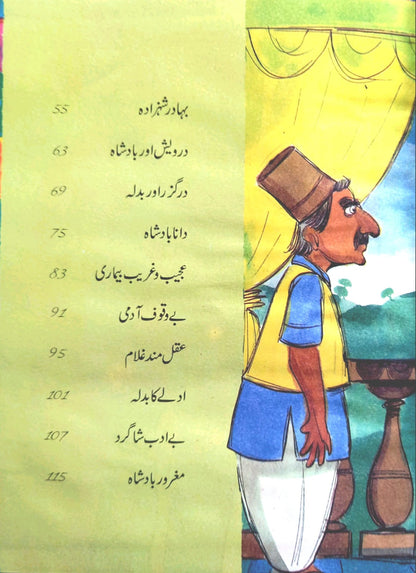 بہادر شہزادہ 55
درویش اور بادشاہ 63
درگزر اور بدلہ 69
دانا بادشاہ 75
عجیب و غریب بیماری 83
بے وقوف آدمی 91
عقل مند غلام 95
ادلے کا بدلہ 101
بے ادب شاگرد 107
مغرور بادشاہ 115